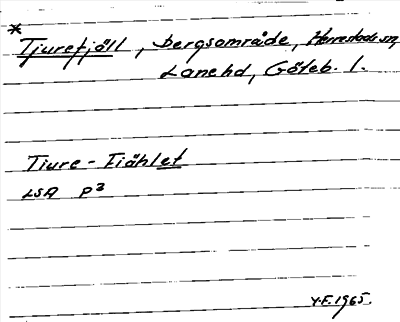 *
Tjurefjäll, bergsområde, Herrestads sn,
Lane hd, Göteb. l.
Tiure - Fiählet
LSA P3
Y.F. 1965.